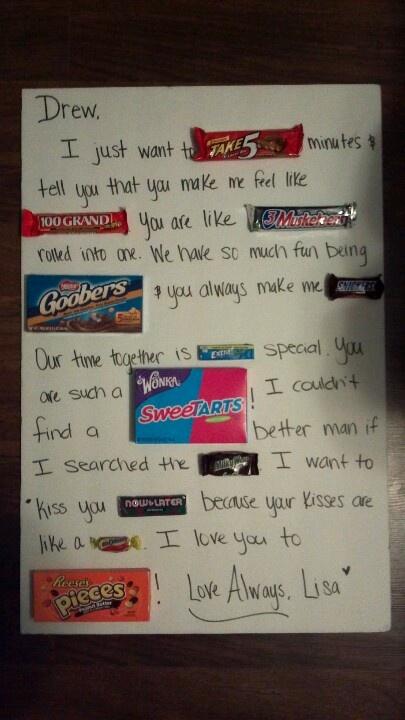 Drew,
I just want to TAKE 5 minutes &
tell you that you make me feel like
100 GRAND! You are like 3 Musketeers
rolled into one. We have so much fun being
Nestlé Goobers & you always make me SNICKERS
Our time together is Extra special. You
are such a WONKA SweeTARTS! I couldn't
find a better man if
I searched the Milky Way I want to
Kiss you NOW&LATER because your kisses are
like a
. I love you to
Reese's Pieces Peanut Butter! Love Always, Lisa